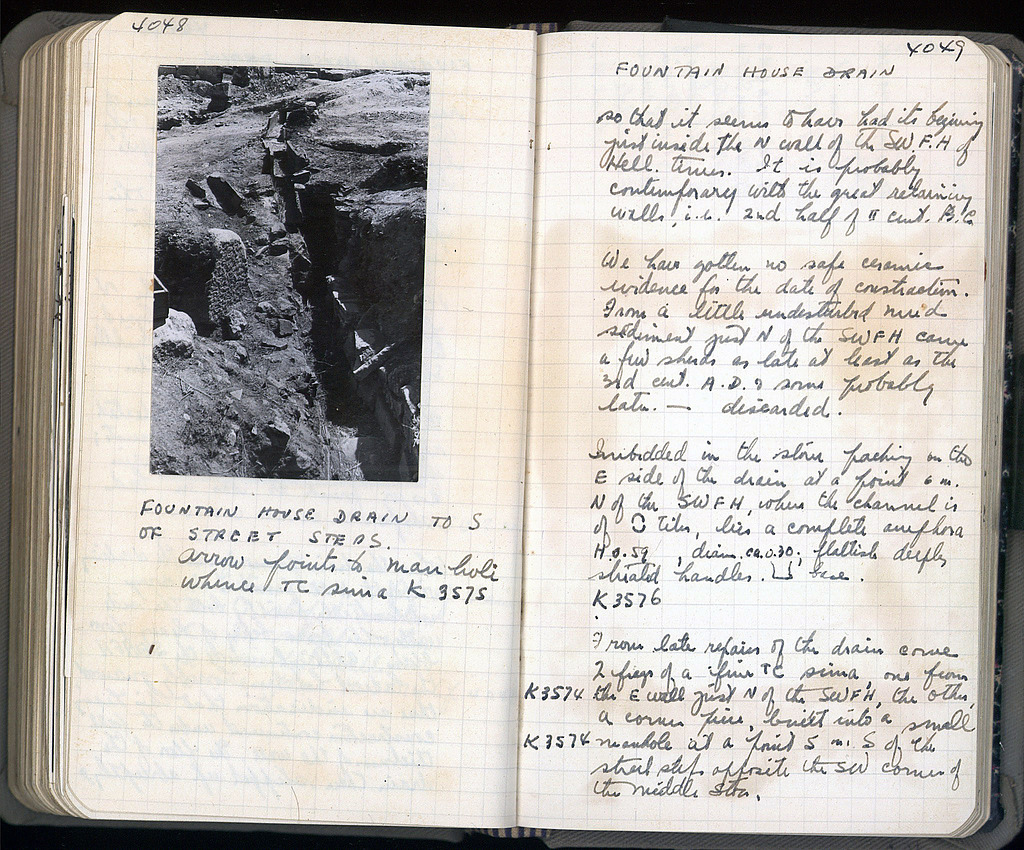 4048
FOUNTAIN HOUSE DRAIN TO S
OF STREET STEPS.
arrow points to manhole
whence TC sima K 3575
4049
FOUNTAIN HOUSE DRAIN
so that it seems to have had its begining
just inside the N wall of the SWFH of
Hell. times. It is probably
contemporary with the great retaining
walls, i.e. 2nd half of II cent. B.C.
We have gotten no safe ceramic
evidence for the date of construction.
From a little undisturbed mud
sediment just N of the SWFH came
a few sherds as late at least as the
3rd cent. A.D. & some probably
later. — discarded.
Imbedded in the stone packing on the
E side of the drain at a point 6 m.
N of the SWFH, where the channel is
of tiles, lies a complete amphora
H 0.59, diam. ca. 0.30; flattish deeply
striated handles. base.
K 3576
From late repairs of the drain come
2 frags of a fine TC sima, one from
K 3574 the E wall just N of the SWFH, the other,
a corner piece, built into a small
K 3574 manhole at a point 5 m. S of the
street steps opposite the SW corner of
the Middle Stoa.